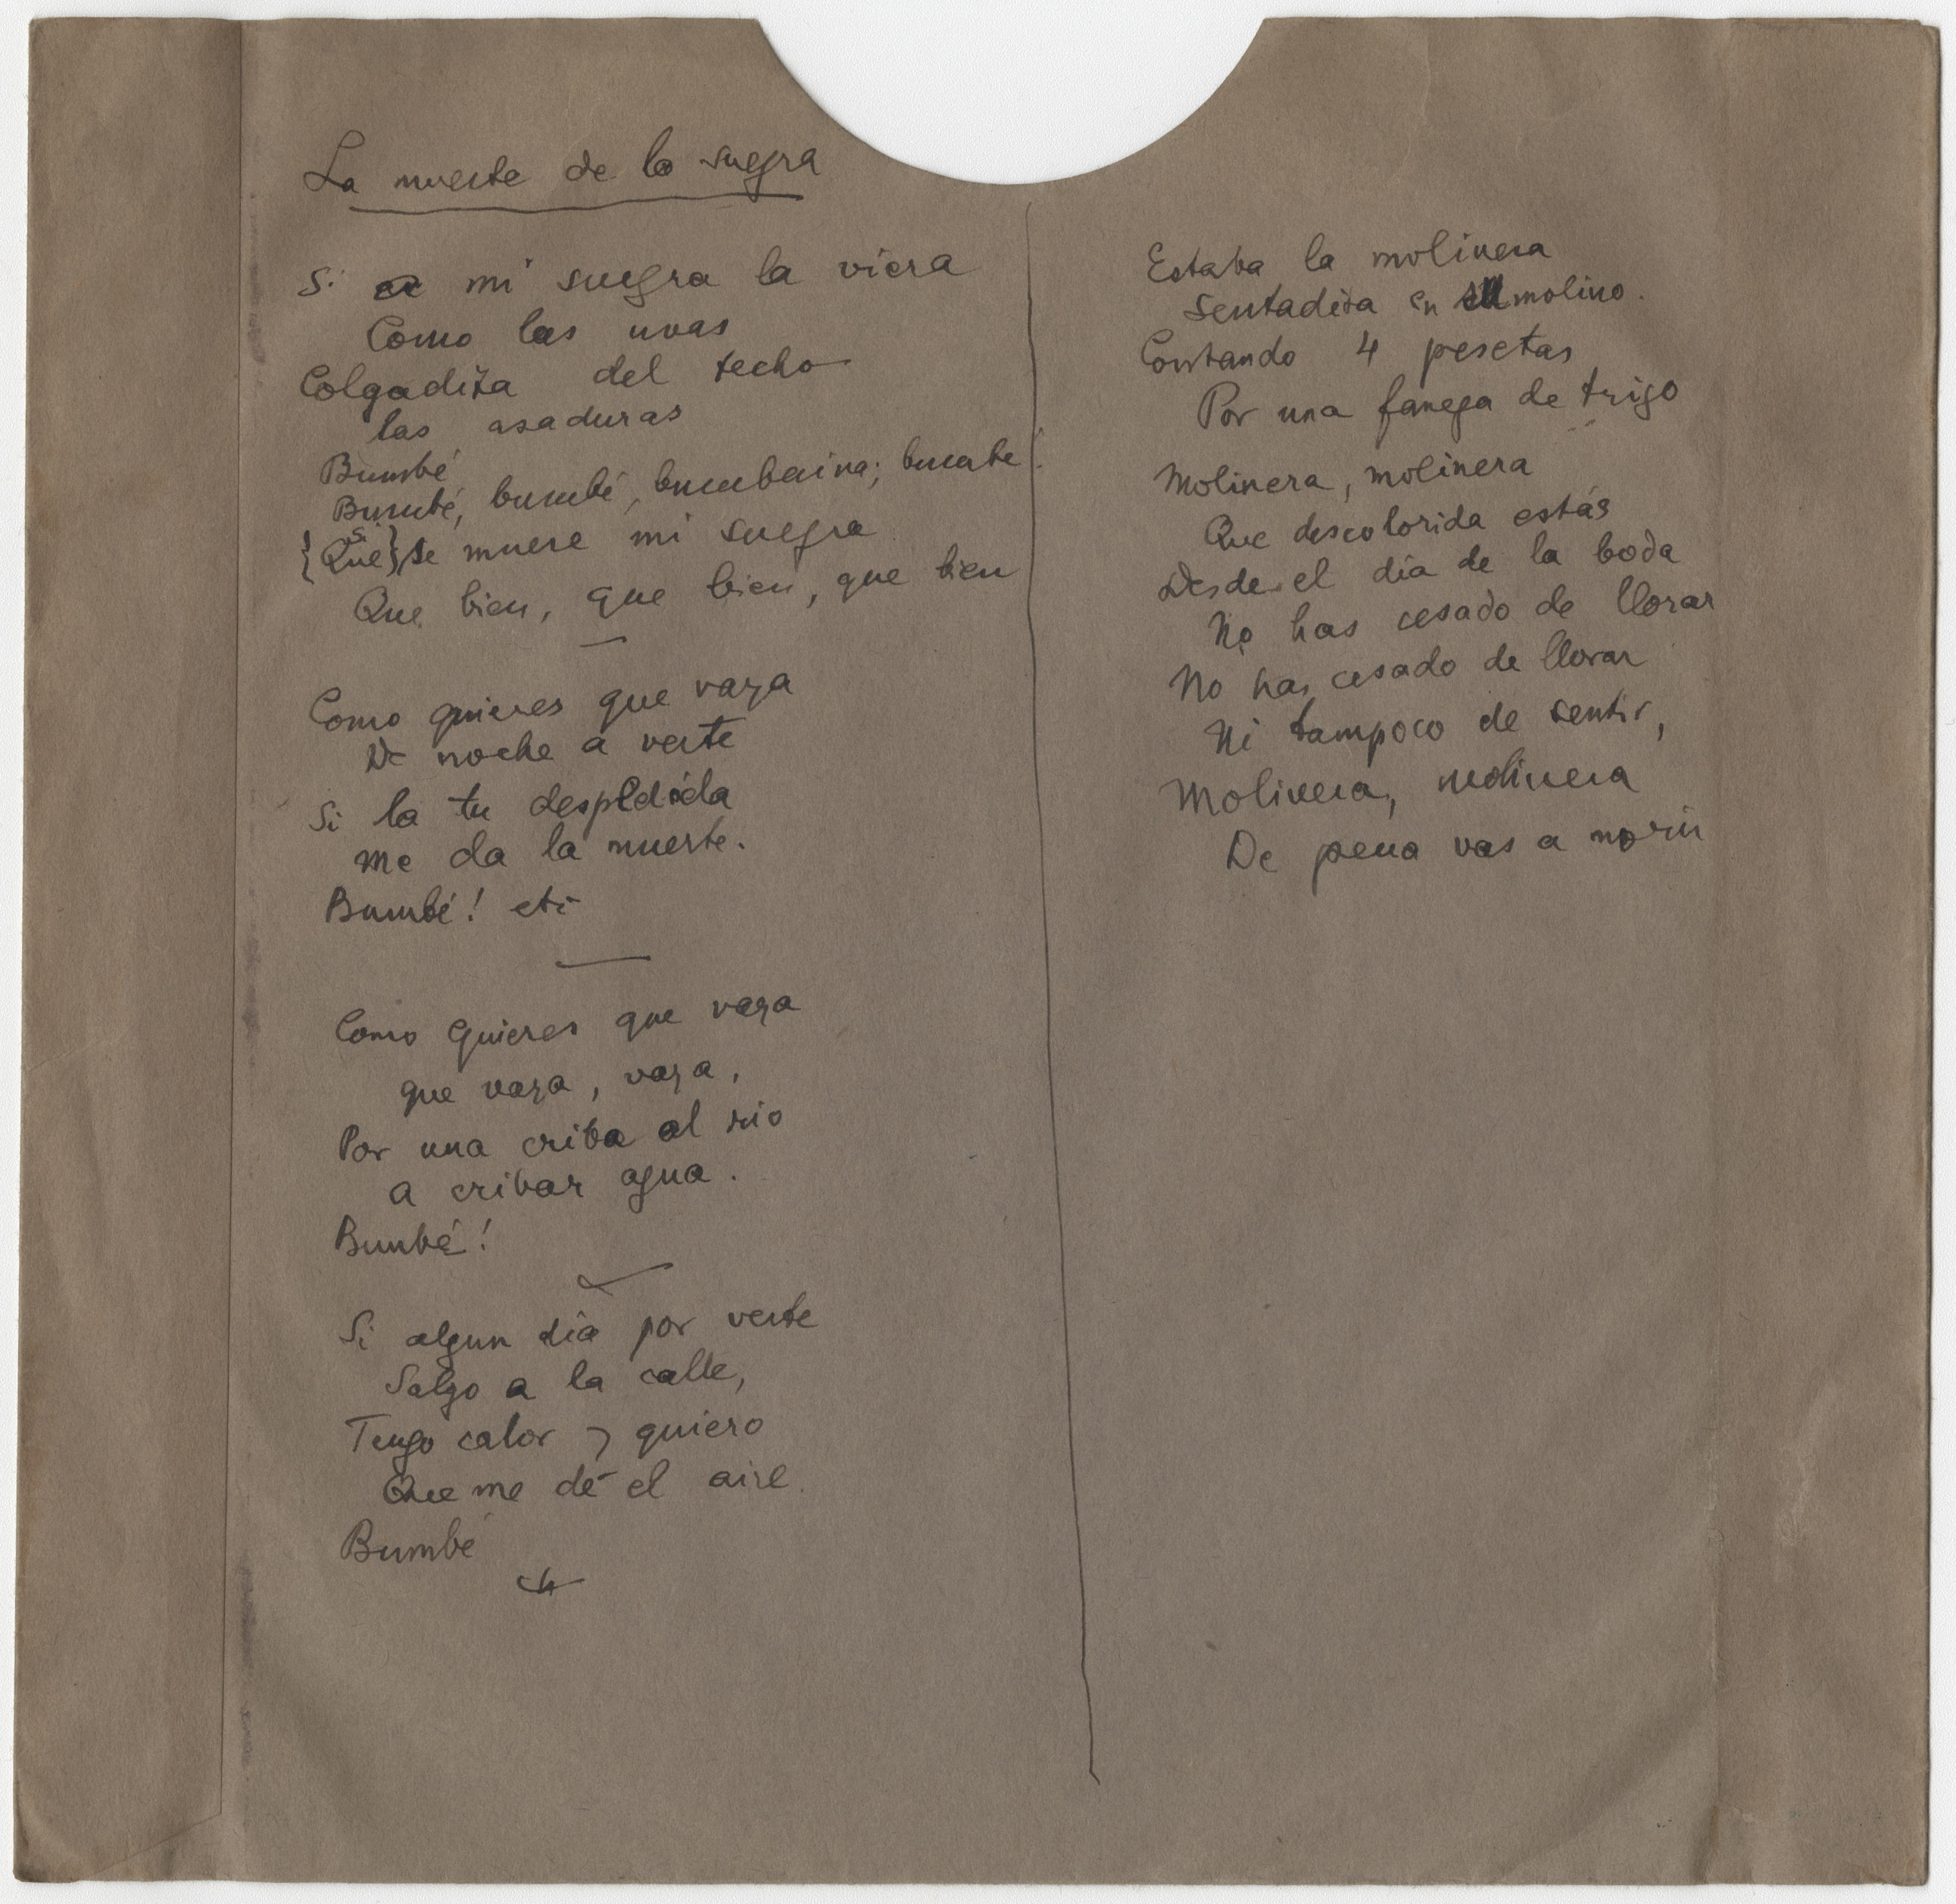 La muerte de la suegra
Si a mi suegra la viera
Como las uvas
Colgadita del techo
las asaduras
Bumbé
Bumbé, bumbé, bumbaina; bumbé!
{Que} si se muere mi suegra
Que bien, que bien, que bien
Como quieres que vaya
De noche a verte
Si la tu despedida
Me da la muerte.
Bumbé! etc
Como quieres que vaya
que vaya, vaya,
Por una criba al rio
a cribar agua.
Bumbé!
Si algun dia por verte
Salgo a la calle,
Tengo calor y quiero
Que me dé el aire.
Bumbé
Estaba la molinera
Sentadita en su molino.
Contando 4 pesetas
Por una fanega de trigo
Molinera, molinera
Que descolorida estás
Desde el dia de la boda
No has cesado de llorar
No has cesado de llorar
Ni tampoco de sentir,
Molinera, molinera
De pena vas a morir